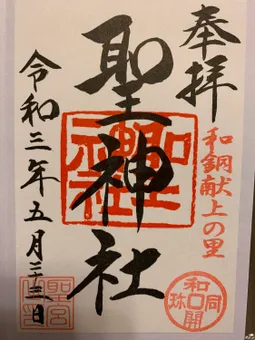 奉拝
和銅献上の里
和同開珎
聖神社
令和三年五月二十三日